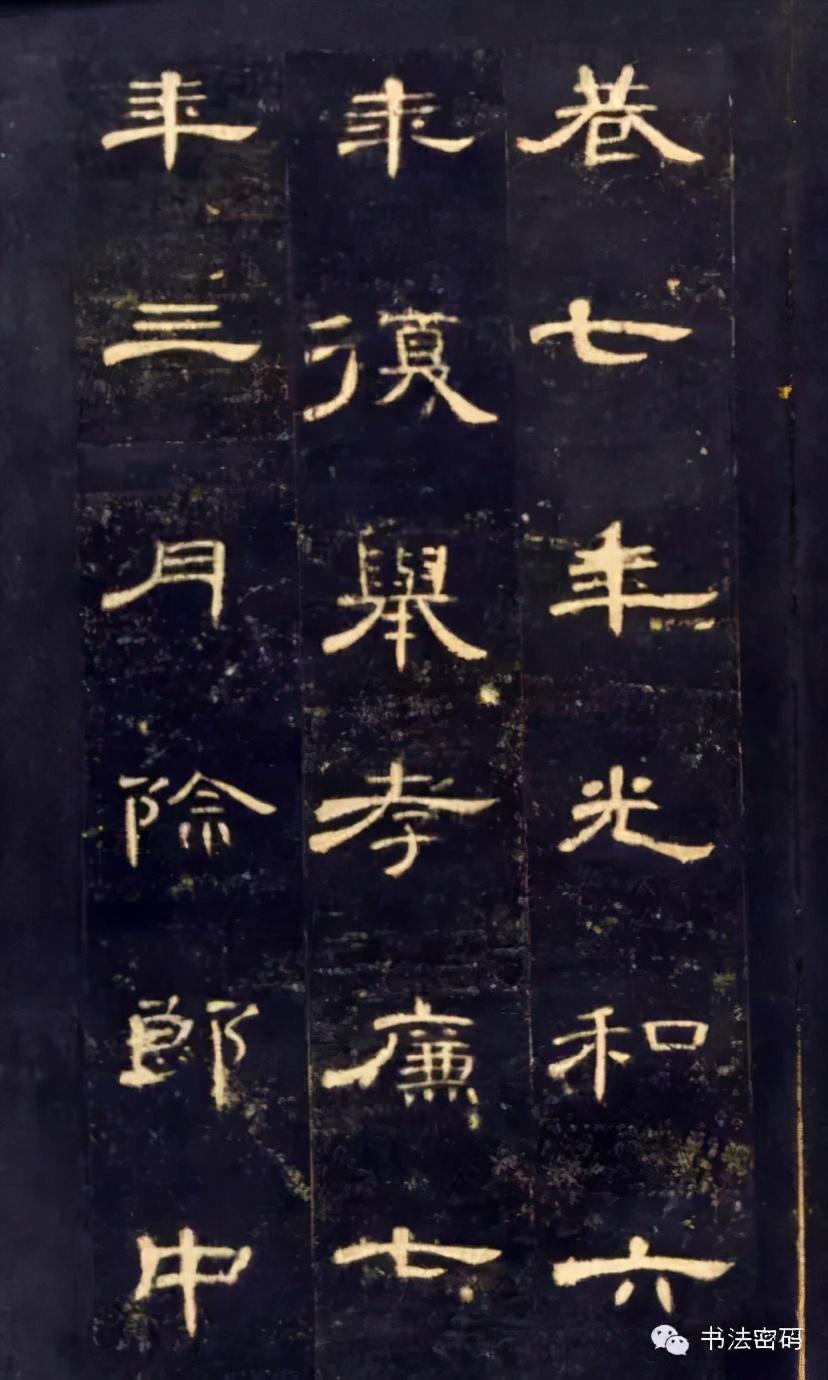 巷七年光和六
年復舉孝廉七
年三月除郎中
书法密码